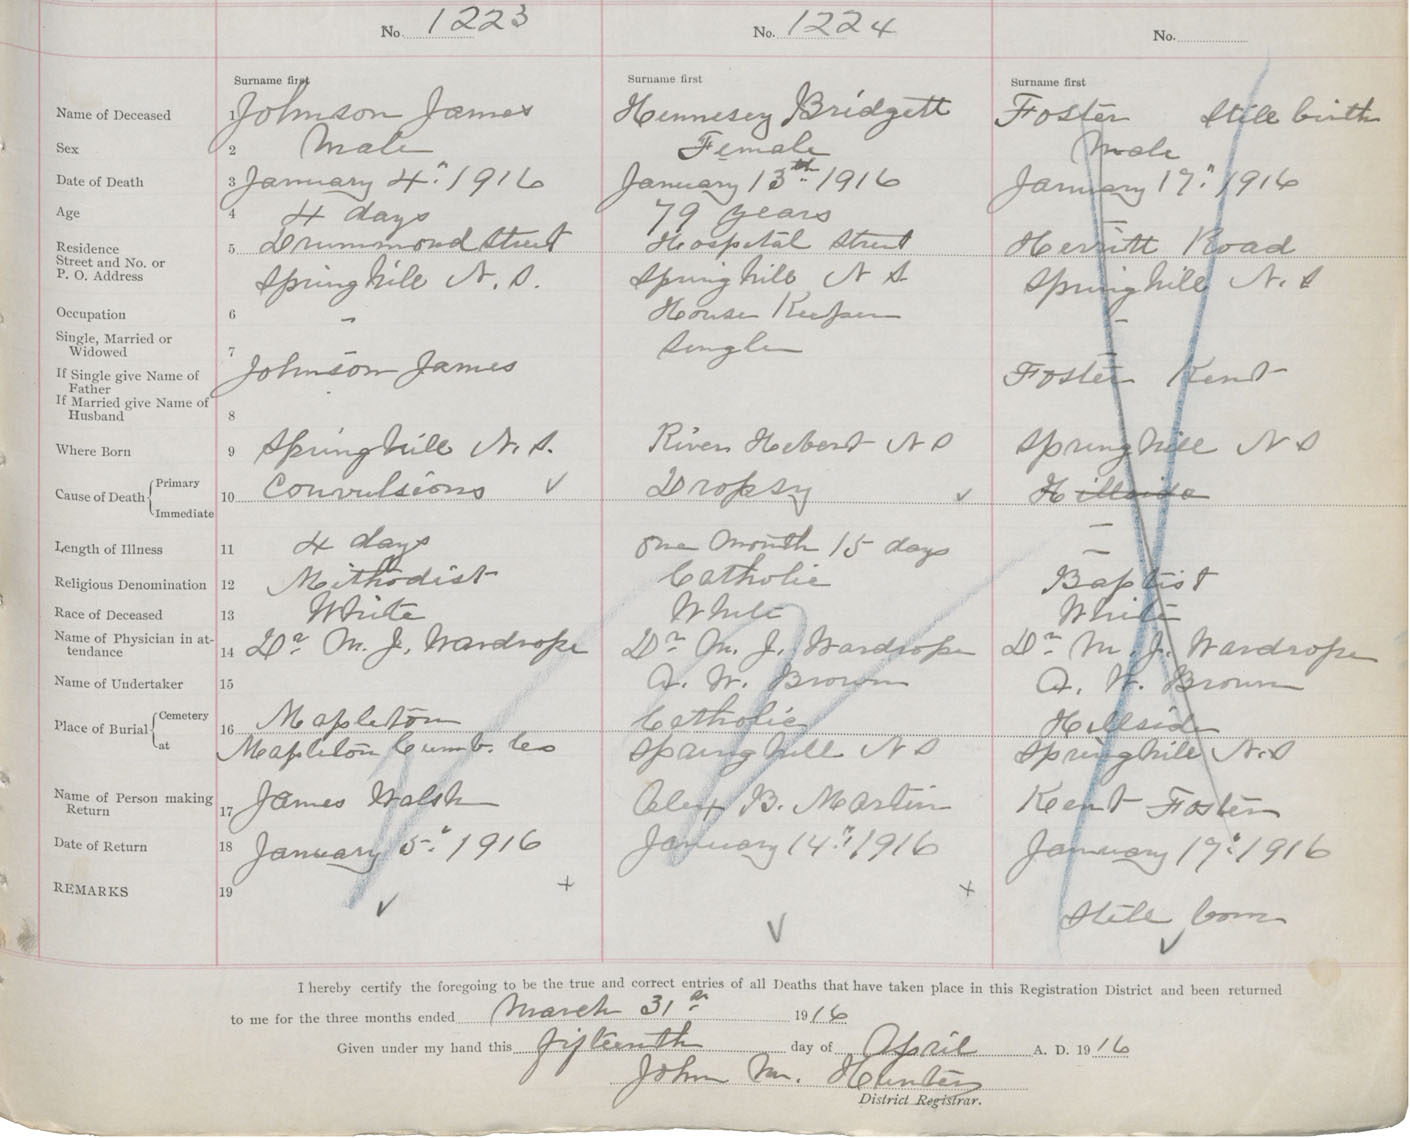 No. 1223 No. 1224 No.
Surname first Surname first Surname first
Name of Deceased 1 Johnson James Hennesey Bridgett Foster Still birth
Sex 2 Male Female Male
Date of Death 3 January 4" 1916 January 13th 1916 January 17" 1916
Age 4 4 days 79 years –
Residence 5 Drummond Street Hospital Street Herritt Road
Street and No. or
P. O. Address Springhill N. S. Springhill N S Springhill N. S
Occupation 6 – House Keeper –
Single, Married or
Widowed 7 – Single –
If Single give Name of Johnson James Foster Kent
Father
If Married give Name of
Husband 8
Where Born 9 Springhill N. S. River Hebert N S Springhill N S
Cause of Death Primary 10 Convulsions ✓ Dropsy ✓ Hillside
Immediate –
Length of Illness 11 4 days one month 15 days –
Religious Denomination 12 Methodist Catholic Baptist
Race of Deceased 13 White White White
Name of Physician in at-
tendance 14 Dr M. J. Wardrope Dr M. J. Wardrope Dr M. J. Wardrope
Name of Undertaker 15 A. W. Brown A. W. Brown
Place of Burial Cemetery 16 Mapleton Catholic Hillside
at Mapleton Cumb. Co Springhill N S Springhill N. S
Name of Person making
Return 17 James Walsh Alex B. Martin Kent Foster
Date of Return 18 January 5" 1916 January 14" 1916 January 17" 1916
REMARKS 19 + +
Still born
✓ ✓ ✓
I hereby certify the foregoing to be the true and correct entries of all Deaths that have taken place in this Registration District and been returned
to me for the three months ended March 31st 1916
Given under my hand this fifteenth day of April A. D. 1916
John M. Hunter
District Registrar.